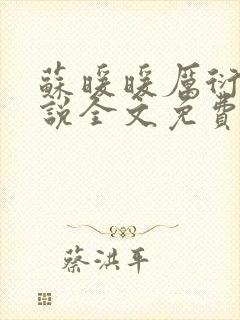 蘇暖暖厲衍
說全文免費
蔡洪平